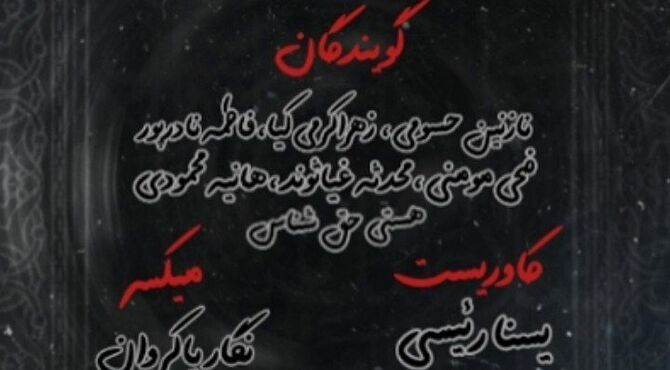 گویندگان
نازنین حسومی، زهرا کرمی کیا، فاطمه نادرپور
مومنی، محدثه غیاثوند، هانیه محمودی
هستی حق شناس
کاوریست
میکسر
یسنا رئیسی
نگار پاکروان